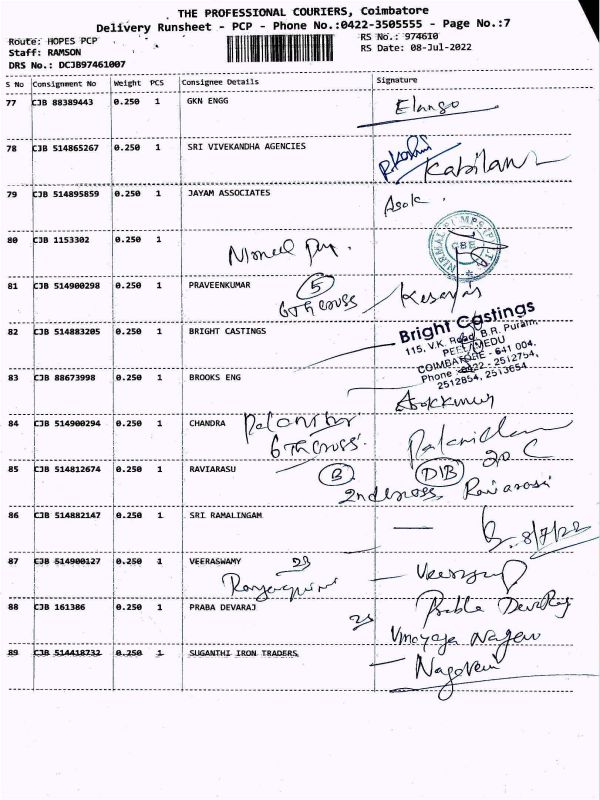 THE PROFESSIONAL COURIERS, Coimbatore
Delivery Runsheet - PCP - Phone No.:0422-3505555 - Page No.:7
Route: HOPES PCP
RS No.: 974610
Staff: RAMSON
RS Date: 08-Jul-2022
DRS No.: DCJB97461007
S No Consignment No Weight PCS Consignee Details Signature
77 CJB 88389443 0.250 1 GKN ENGG Elango
78 CJB 514865267 0.250 1 SRI VIVEKANDHA AGENCIES Kabilan
79 CJB 514895859 0.250 1 JAYAM ASSOCIATES Asok
80 CJB 1153302 0.250 1
CBE
81 CJB 514900298 0.250 1 PRAVEENKUMAR 5
6th cross
82 CJB 514883205 0.250 1 BRIGHT CASTINGS
Bright Castings
115, V.K. Road, B.R. Puram,
PEELAMEDU
COIMBATORE - 641 004.
Phone : 0422 - 2512754,
2512854, 2513654
83 CJB 88673998 0.250 1 BROOKS ENG
84 CJB 514900294 0.250 1 CHANDRA
6th cross.
20 C
85 CJB 514812674 0.250 1 RAVIARASU B D1B
2nd cross, Raviarasu
86 CJB 514882147 0.250 1 SRI RAMALINGAM
8/7/22
87 CJB 514900127 0.250 1 VEERASWAMY
88 CJB 161386 0.250 1 PRABA DEVARAJ Prabha Devaraj
Vinayaga Nagar
89 CJB 514418732 0.250 1 SUGANTHI IRON TRADERS